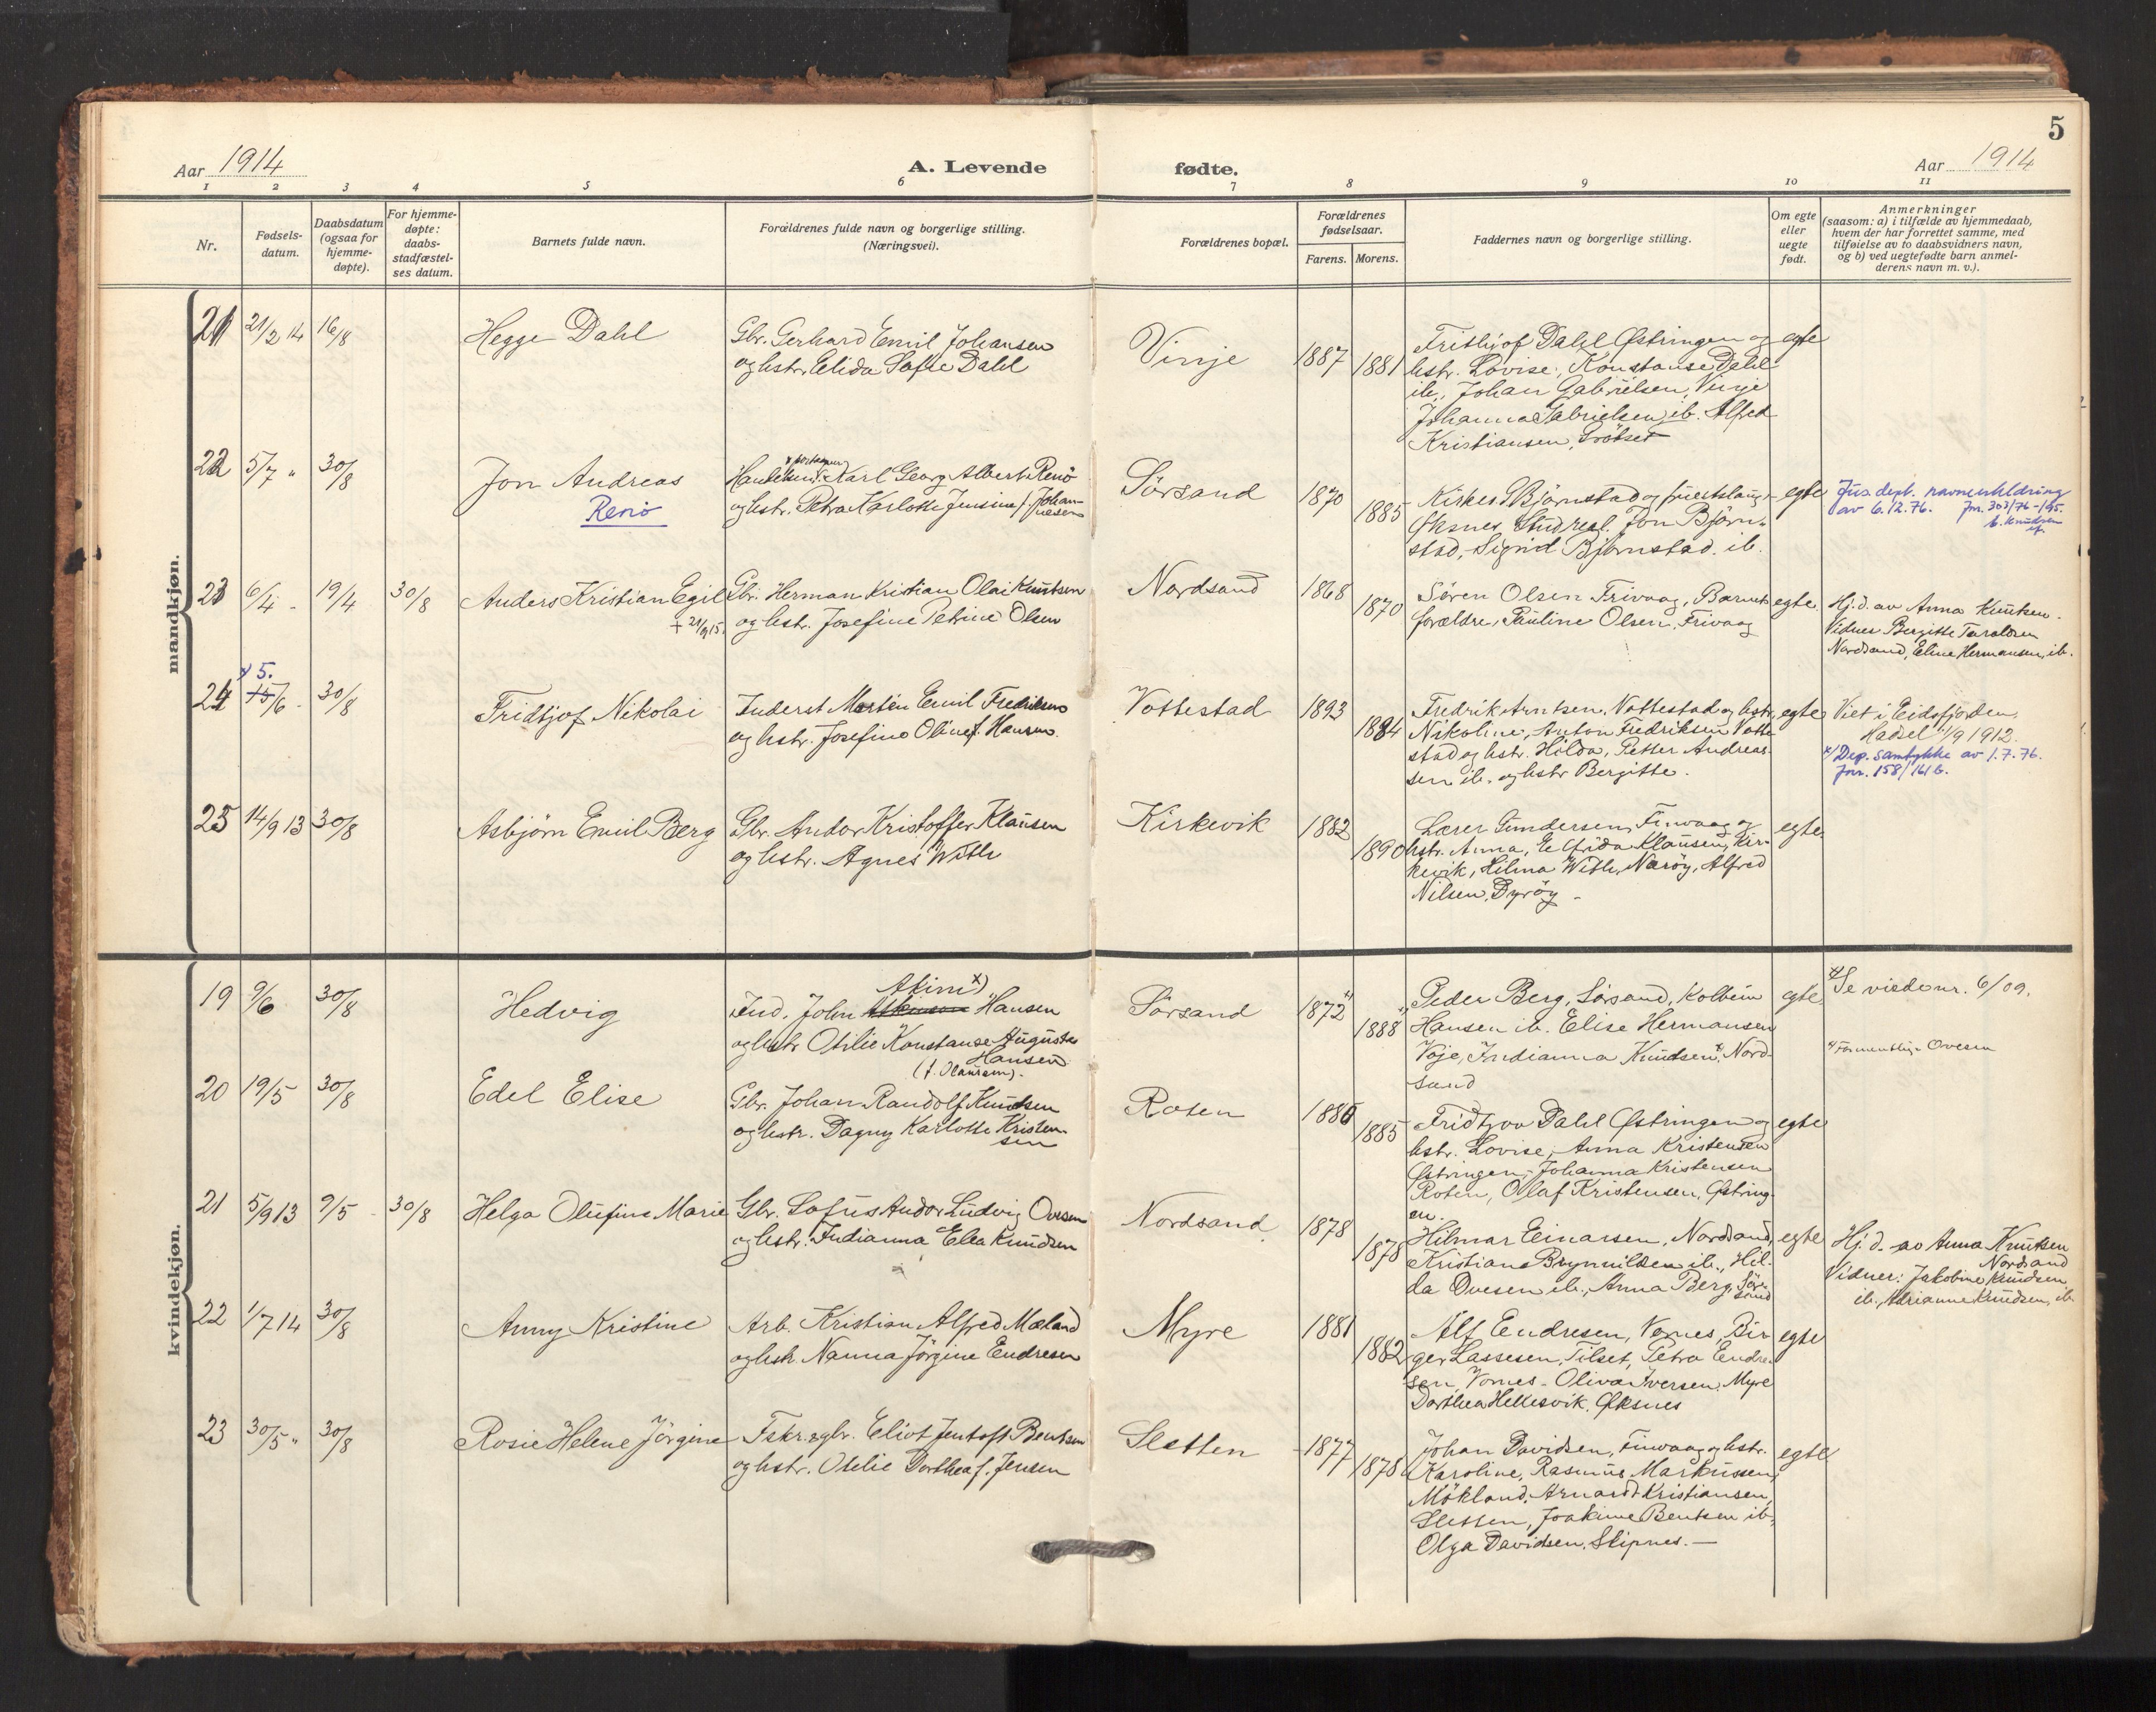 5
Aar 1914
A. Levende
fødte.
Aar 1914
1 2 3 4 5 6 7 8 9 10 11
Nr.
Fødsels-
datum.
Daabsdatum
(ogsaa for
hjemme-
døpte).
For hjemme-
døpte:
daabs-
stadfæstel-
ses datum.
Barnets fulde navn.
Forældrenes fulde navn og borgerlige stilling.
(Næringsvei).
Forældrenes bopæl.
Forældrenes
fødselsaar.
Farens. Morens.
Faddernes navn og borgerlige stilling.
Om egte
eller
uegte
født.
Anmerkninger
(saasom: a) i tilfælde av hjemmedaab,
hvem der har forrettet samme, med
tilføielse av to daabsvidners navn,
og b) ved uegtefødte barn anmel-
derens navn m. v.).
mandkjøn.
21 21/2 14 16/8
Hegge Dahl
Gbr. Gerhard Emil Johansen
og hstr. Elida Sofie Dahl
Vinje
1887
1881
Frithjof Dahl Østringen og
hstr. Lovise, Konstanse Dahl
ib., Johan Gabrielsen, Vinje
Johanna Gabrielsen, ib. Alfred
Kristiansen,
egte
22 5/7 " 30/8
Jon Andreas
Renö
Karl Georg Albert Renö
og hstr. Petra Karlotte Jensine f. Johan-
nesen
Sörsand
1870
1885
Kirkes. Björnstad og
Øksnes, Jon Björn-
stad, Sigrid Björnstad. ib.
egte
Jus.dept.
av 6.12.76. Jnr. 303/76
23 6/4 - 19/4 30/8
Anders Kristian Egil
+ 21/9 15.
Gbr. Herman Kristian Olai Knutsen
og hstr. Josefine Petrine Olsen
Nordsand
1868
1870
Sören Olsen Frivaag, Barnets
forældre, Pauline Olsen, Frivaag
egte
Hj.d. av Anna Knutsen.
Vidner Bergitte Taraldsen
Nordsand, Eline Hermansen, ib.
x) 5.
24 15/6 - 30/8
Fridtjof Nikolai
Inderst Martin Emil Fredriksen
og hstr. Josefine Oline f. Hansen.
Vottestad
1893
1894
Fredrik Arntsen, Vottestad og hstr.
Nikoline, Anton Fredriksen Votte-
stad og hstr. Hilda, Petter Andreas-
sen ib. og hstr Bergitte.
egte
Viet i Eidsfjorden,
Hadsel 1/9 1912.
x) Dep. samtykke av 1.7.76.
Jnr. 158/161 b.
25 14/9 13 30/8
Asbjörn Emil Berg
Gbr. Andor Kristoffer Klausen
og hstr. Agnes With
Kirkevik
1882
1890
Lærer Gundersen, Finvaag og
hstr. Anna, Elfrida Klausen, Kir-
kevik, Hilma With, Naröy, Alfred
Nilsen, Dyröy -
egte
kvindekjøn.
19 9/6 30/8
Hedvig
Akim x)
Ind. John Hansen
og hstr Otilie Konstanse Augusta
Hansen
(f. Olausen).
Sörsand
1872 x)
1888 x)
Peder Berg, Sörsand, Kolbein
Hansen ib. Elise Hermansen
Voje, Indianna Knudsen x), Nord-
sand
egte
x) Se vied. nr. 6/09.
x) Formentlig Ovesen
20 19/5 30/8
Edel Elise
Gbr. Johan Randolf Knudsen
og hstr. Dagny Karlotte Kristen-
sen
Roten
1886
1885
Fridtjov Dahl Østringen og
hstr. Lovise, Anna Kristensen
Østringen, Johanna Kristensen
Roten, Olaf Kristensen, Østring-
en.
egte
21 5/9 13 9/5 - 30/8
Helga Olufine Marie
Gbr. Sofus Andor Ludvig Ovesen
og hstr. Indianna Elea Knudsen
Nordsand
1878
1878
Hilmar Einarsen, Nordsand,
Kristian Brynnilsen ib., Hil-
da Ovesen ib., Anna Berg, Sör-
sand
egte
Hj.d. av Anna Knutsen
Nordsand
Vidner: Jakobine Knudsen
ib., Adrianne Knudsen, ib.
22 1/7 14 30/8
Anny Kristine
Arb. Kristian Alfred Mæland
og hstr. Nanna Jörgine Endresen
Myre
1881
1882
Alf Endresen, Vornes, Bir-
ger Lassesen, Tilset, Petra Endre-
sen, Vornes - Oliva Iversen, Myre
Dorthea Hellesvik, Øksnes
egte
23 30/5 " 30/8
Rosie Helene Jörgine
Fskr. & gbr. Eliot Jentoft Bentsen
og hstr. Otelie Dorthea f. Jensen
Sletten
1877
1878
Johan Davidsen, Finvaag og hstr.
Karoline, Rasmus Markussen,
Mökland, Arnardt Kristiansen,
Sletten, Joakime Bentsen ib,
Olga Davidsen, Skipnes. -
egte